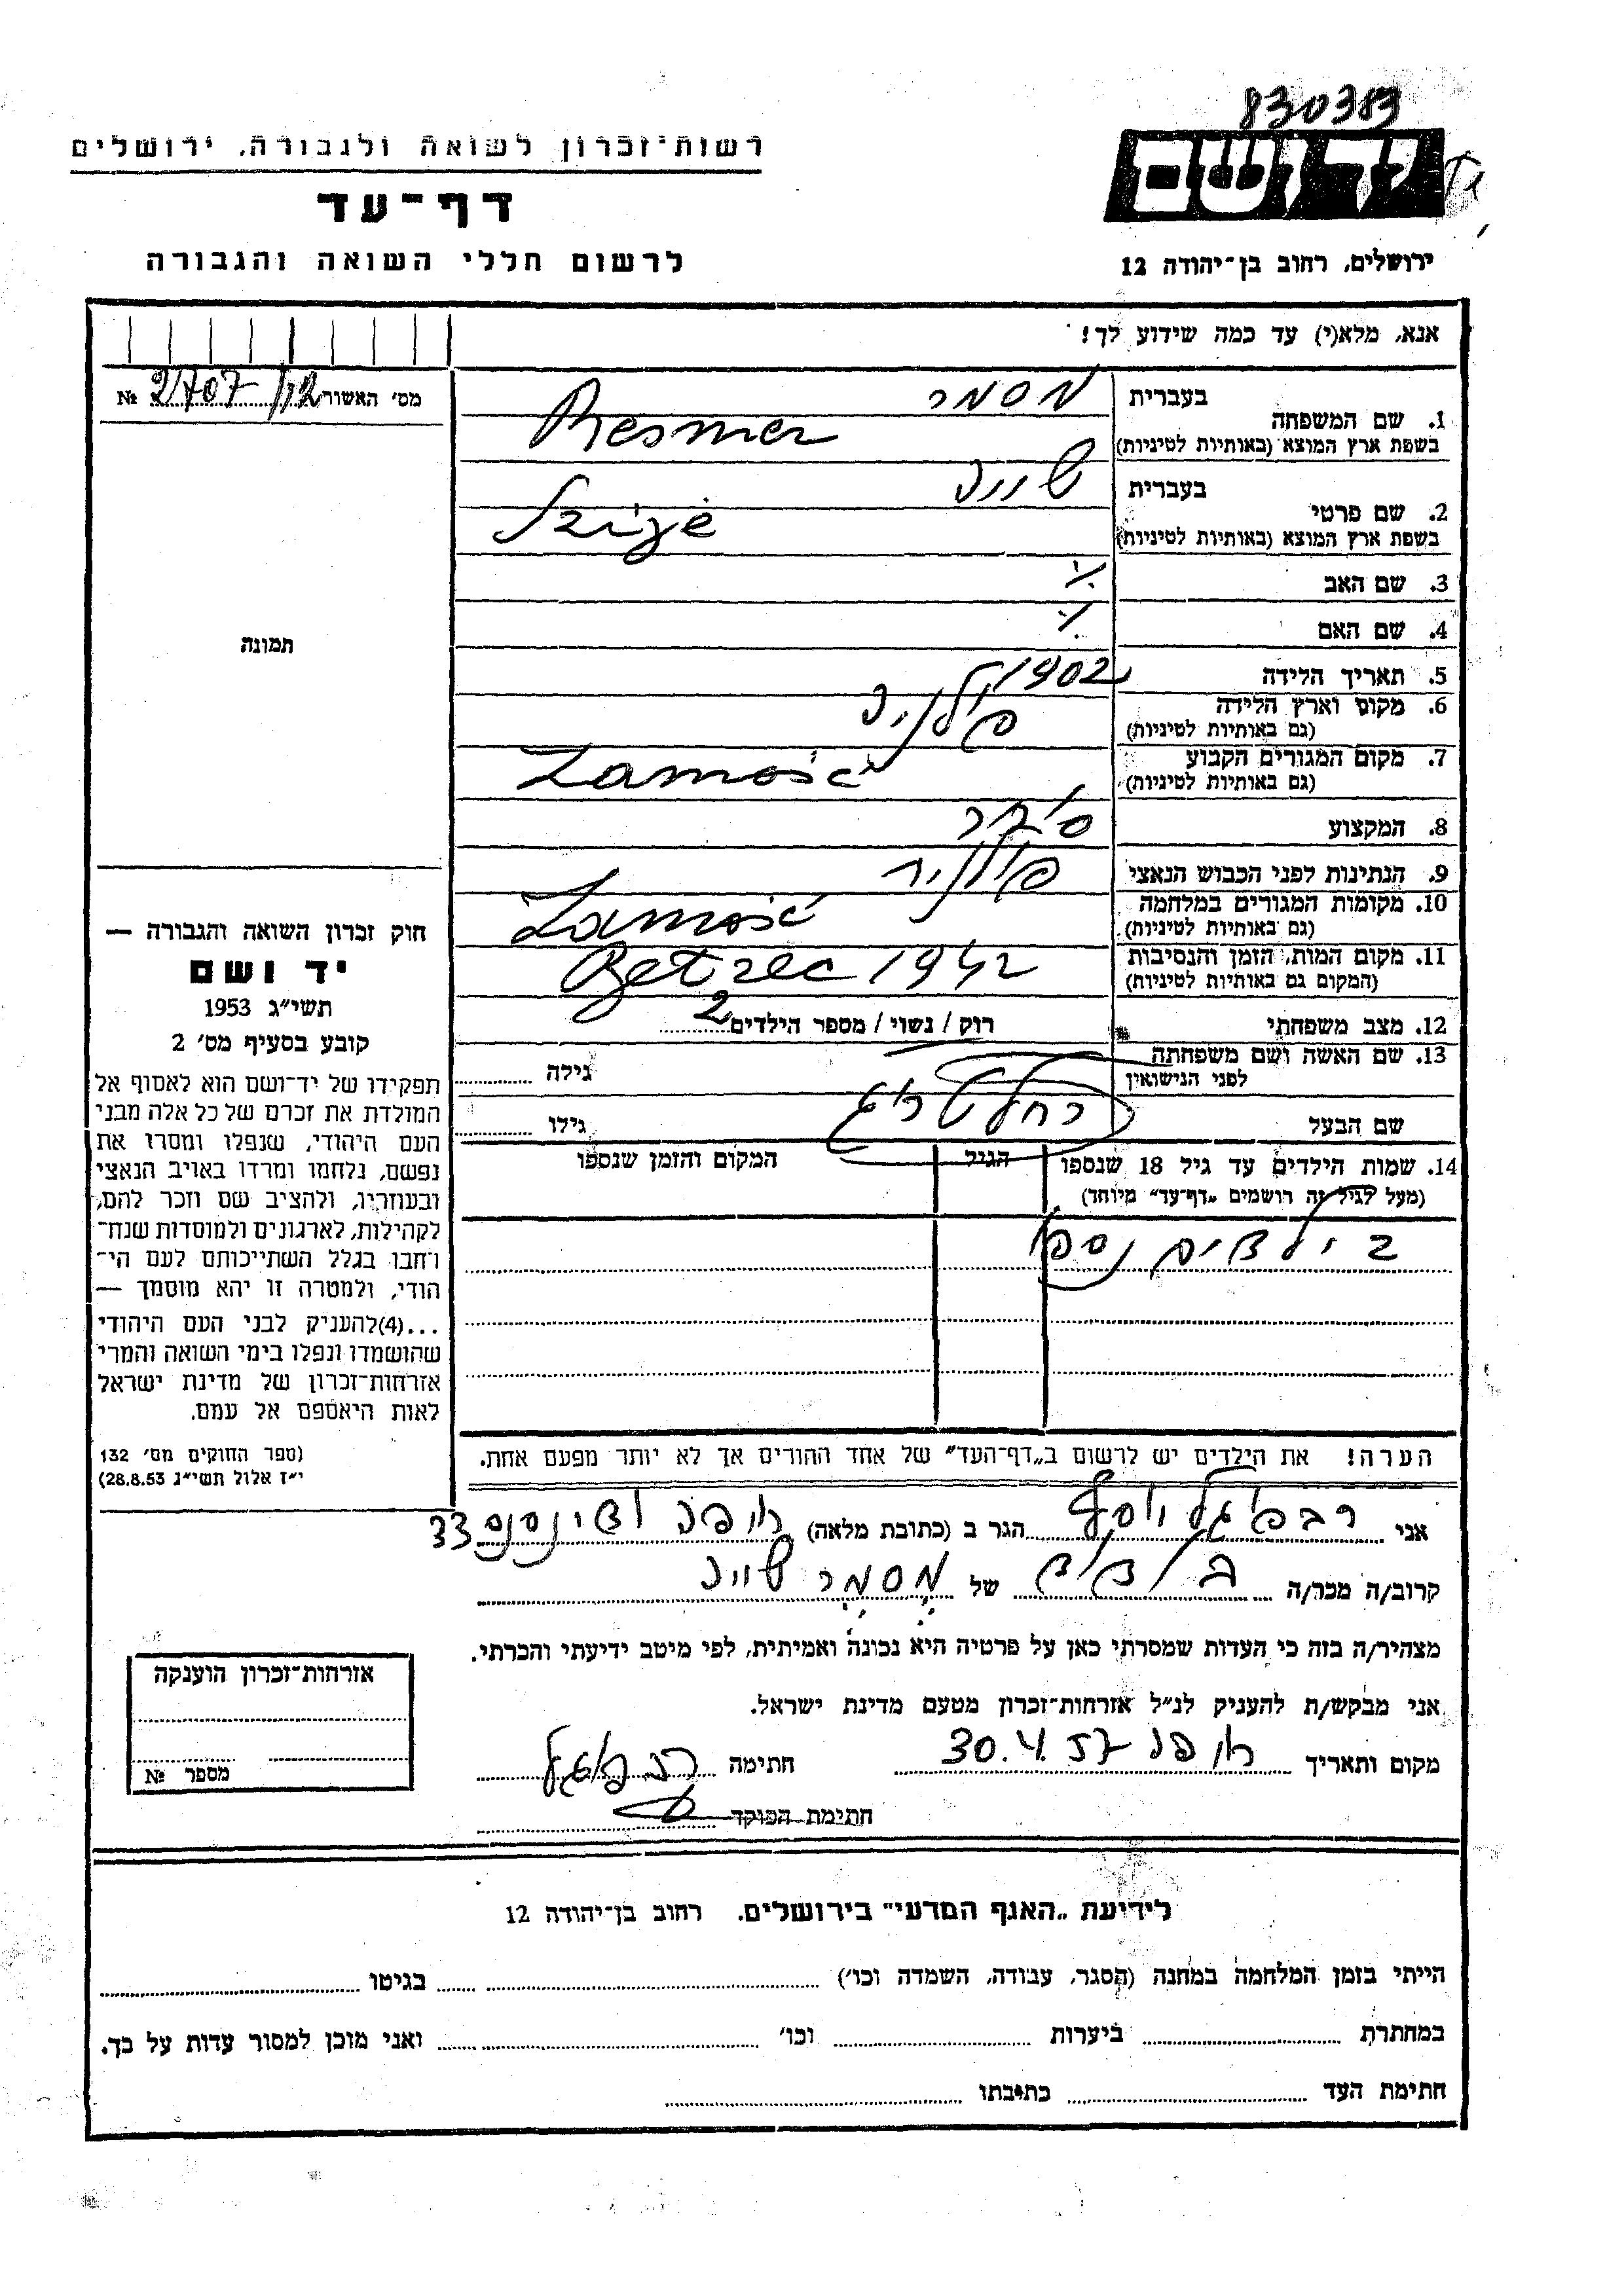 830383
רשות-זכרון לשואה ולגבורה, ירושלים
יד ושם
דף-עד
לרשום חללי השואה והגבורה
ירושלים, רחוב בן-יהודה 12
אנא, מלא(י) עד כמה שידוע לך!
מס' האשור № 2707/12
1. שם המשפחה
בעברית מסמר
בשפת ארץ המוצא (באותיות לטיניות) Resmer
2. שם פרטי
בעברית
בשפת ארץ המוצא (באותיות לטיניות)
3. שם האב ٪
4. שם האם ٪
5. תאריך הלידה 1902
6. מקום וארץ הלידה פולניה
(גם באותיות לטיניות)
7. מקום המגורים הקבוע Zamość
(גם באותיות לטיניות)
8. המקצוע
9. הנתינות לפני הכבוש הנאצי פולנית
10. מקומות המגורים במלחמה Zamość
(גם באותיות לטיניות)
11. מקום המות, הזמן והנסיבות Betzec 1942
(המקום גם באותיות לטיניות)
12. מצב משפחתי רוק / נשוי / מספר הילדים 2
13. שם האשה ושם משפחתה גילה
לפני הנישואין
רחל
שם הבעל גילו
14. שמות הילדים עד גיל 18 שנספו הגיל המקום והזמן שנספו
(מעל לגיל זה רושמים „דף-עד" מיוחד)
2 ילדים נספו
הערה! את הילדים יש לרשום ב„דף-העד" של אחד ההורים אך לא יותר מפעם אחת.
תמונה
חוק זכרון השואה והגבורה —
יד ושם
תשי״ג 1953
קובע בסעיף מס' 2
תפקידו של יד-ושם הוא לאסוף אל
המולדת את זכרם של כל אלה מבני
העם היהודי, שנפלו ומסרו את
נפשם, נלחמו ומרדו באויב הנאצי
ובעוזריו, ולהציב שם וזכר להם,
לקהילות, לארגונים ולמוסדות שנח-
רחבו בגלל השתייכותם לעם הי-
הודי, ולמטרה זו יהא מוסמך —
...(4)להעניק לבני העם היהודי
שהושמדו ונפלו בימי השואה והמרי
אזרחות-זכרון של מדינת ישראל
לאות היאספם אל עמם.
(ספר החוקים מס' 132
י״ז אלול תשי״ג 28.8.53)
אני יוסף הגר ב (כתובת מלאה) חיפה 33
קרוב/ה מכר/ה של מסמר
מצהיר/ה בזה כי העדות שמסרתי כאן על פרטיה היא נכונה ואמיתית, לפי מיטב ידיעתי והכרתי.
אני מבקש/ת להעניק לנ״ל אזרחות-זכרון מטעם מדינת ישראל.
מקום ותאריך חיפה 30.4.57 חתימה
חתימת הפוקד
אזרחות-זכרון הוענקה
מספר №
לידיעת „האגף המדעי" בירושלים. רחוב בן-יהודה 12
הייתי בזמן המלחמה במחנה (הסגר, עבודה, השמדה וכו') בגיטו
במחתרת ביערות וכו' ואני מוכן למסור עדות על כך.
חתימת העד כתובתו